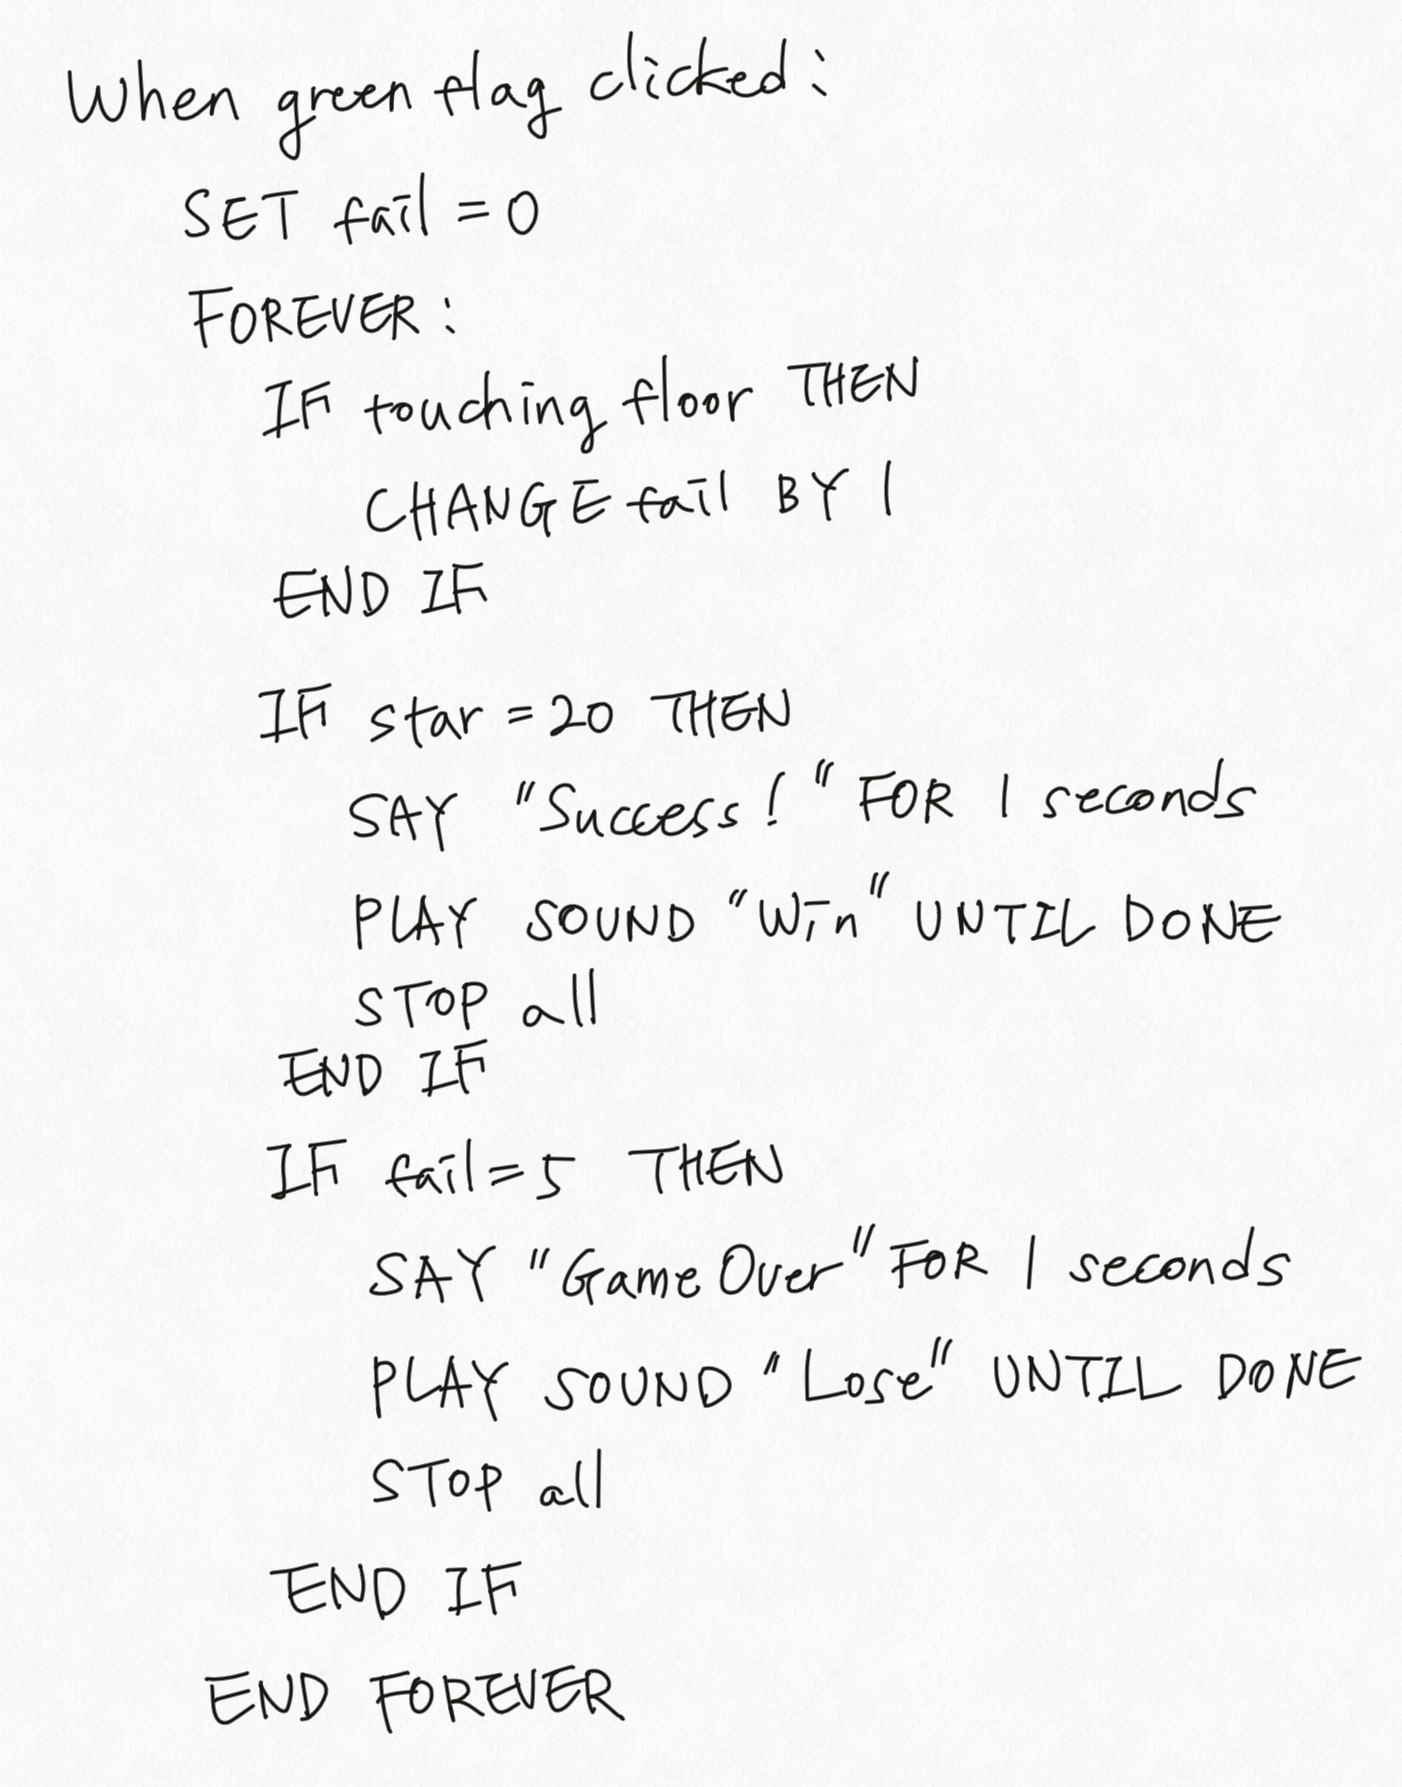 When green flag clicked:
SET fail = 0
FOREVER:
IF touching floor THEN
CHANGE fail BY 1
END IF
IF star = 20 THEN
SAY "Success!" FOR 1 seconds
PLAY SOUND "Win" UNTIL DONE
STOP all
END IF
IF fail = 5 THEN
SAY "Game Over" FOR 1 seconds
PLAY SOUND "Lose" UNTIL DONE
STOP all
END IF
END FOREVER